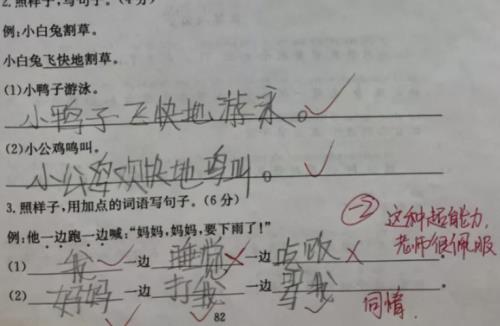 2.照样子,写句子。(4分)
例:小白兔割草。
小白兔飞快地割草。
(1)小鸭子游泳。
小鸭子飞快地游泳。
(2)小公鸡鸣叫。
小公鸡欢快地鸣叫。
3.照样子,用加点的词语写句子。(6分)
例:他一边跑一边喊:“妈妈,妈妈,要下雨了!”
(1) 我 一边 睡觉 一边 吃饭
(2) 妈妈 一边 打我 一边 骂我
-2 这种超能力,
老师很佩服
同情
82